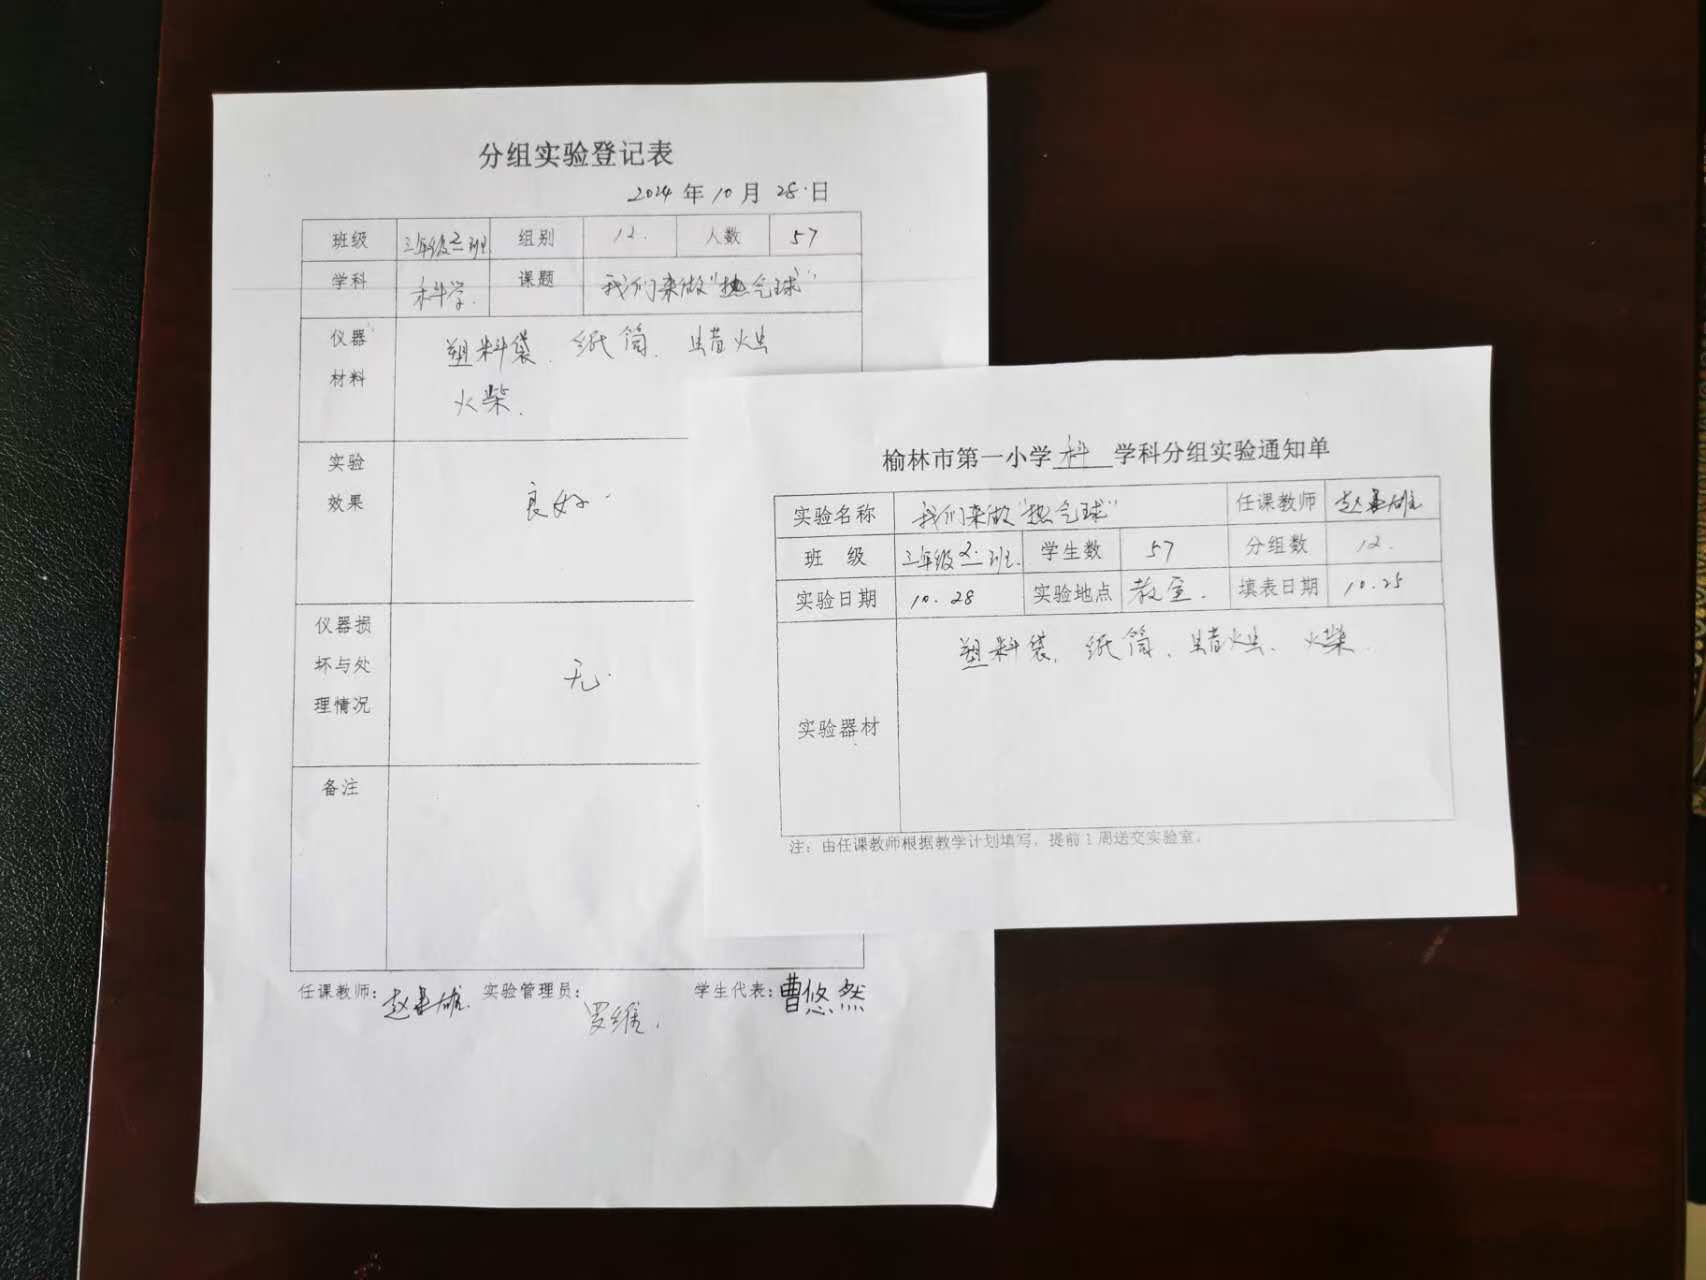 分组实验登记表
2024 年 10 月 28 日
班级 三年级2班 组别 12. 人数 57
学科 科学. 课题 我们来做“热气球”
仪器材料 塑料袋、纸筒、蜡烛
火柴.
实验效果 良好.
仪器损坏与处理情况 无.
备注
任课教师: 赵 雄 实验管理员: 罗维. 学生代表: 曹悠然
榆林市第一小学 科 学科分组实验通知单
实验名称 我们来做“热气球” 任课教师 赵 雄
班 级 三年级2.班. 学生数 57 分组数 12.
实验日期 10.28 实验地点 教室. 填表日期 10.25
塑料袋、纸筒、蜡烛、火柴.
实验器材
注：由任课教师根据教学计划填写，提前1周送交实验室。